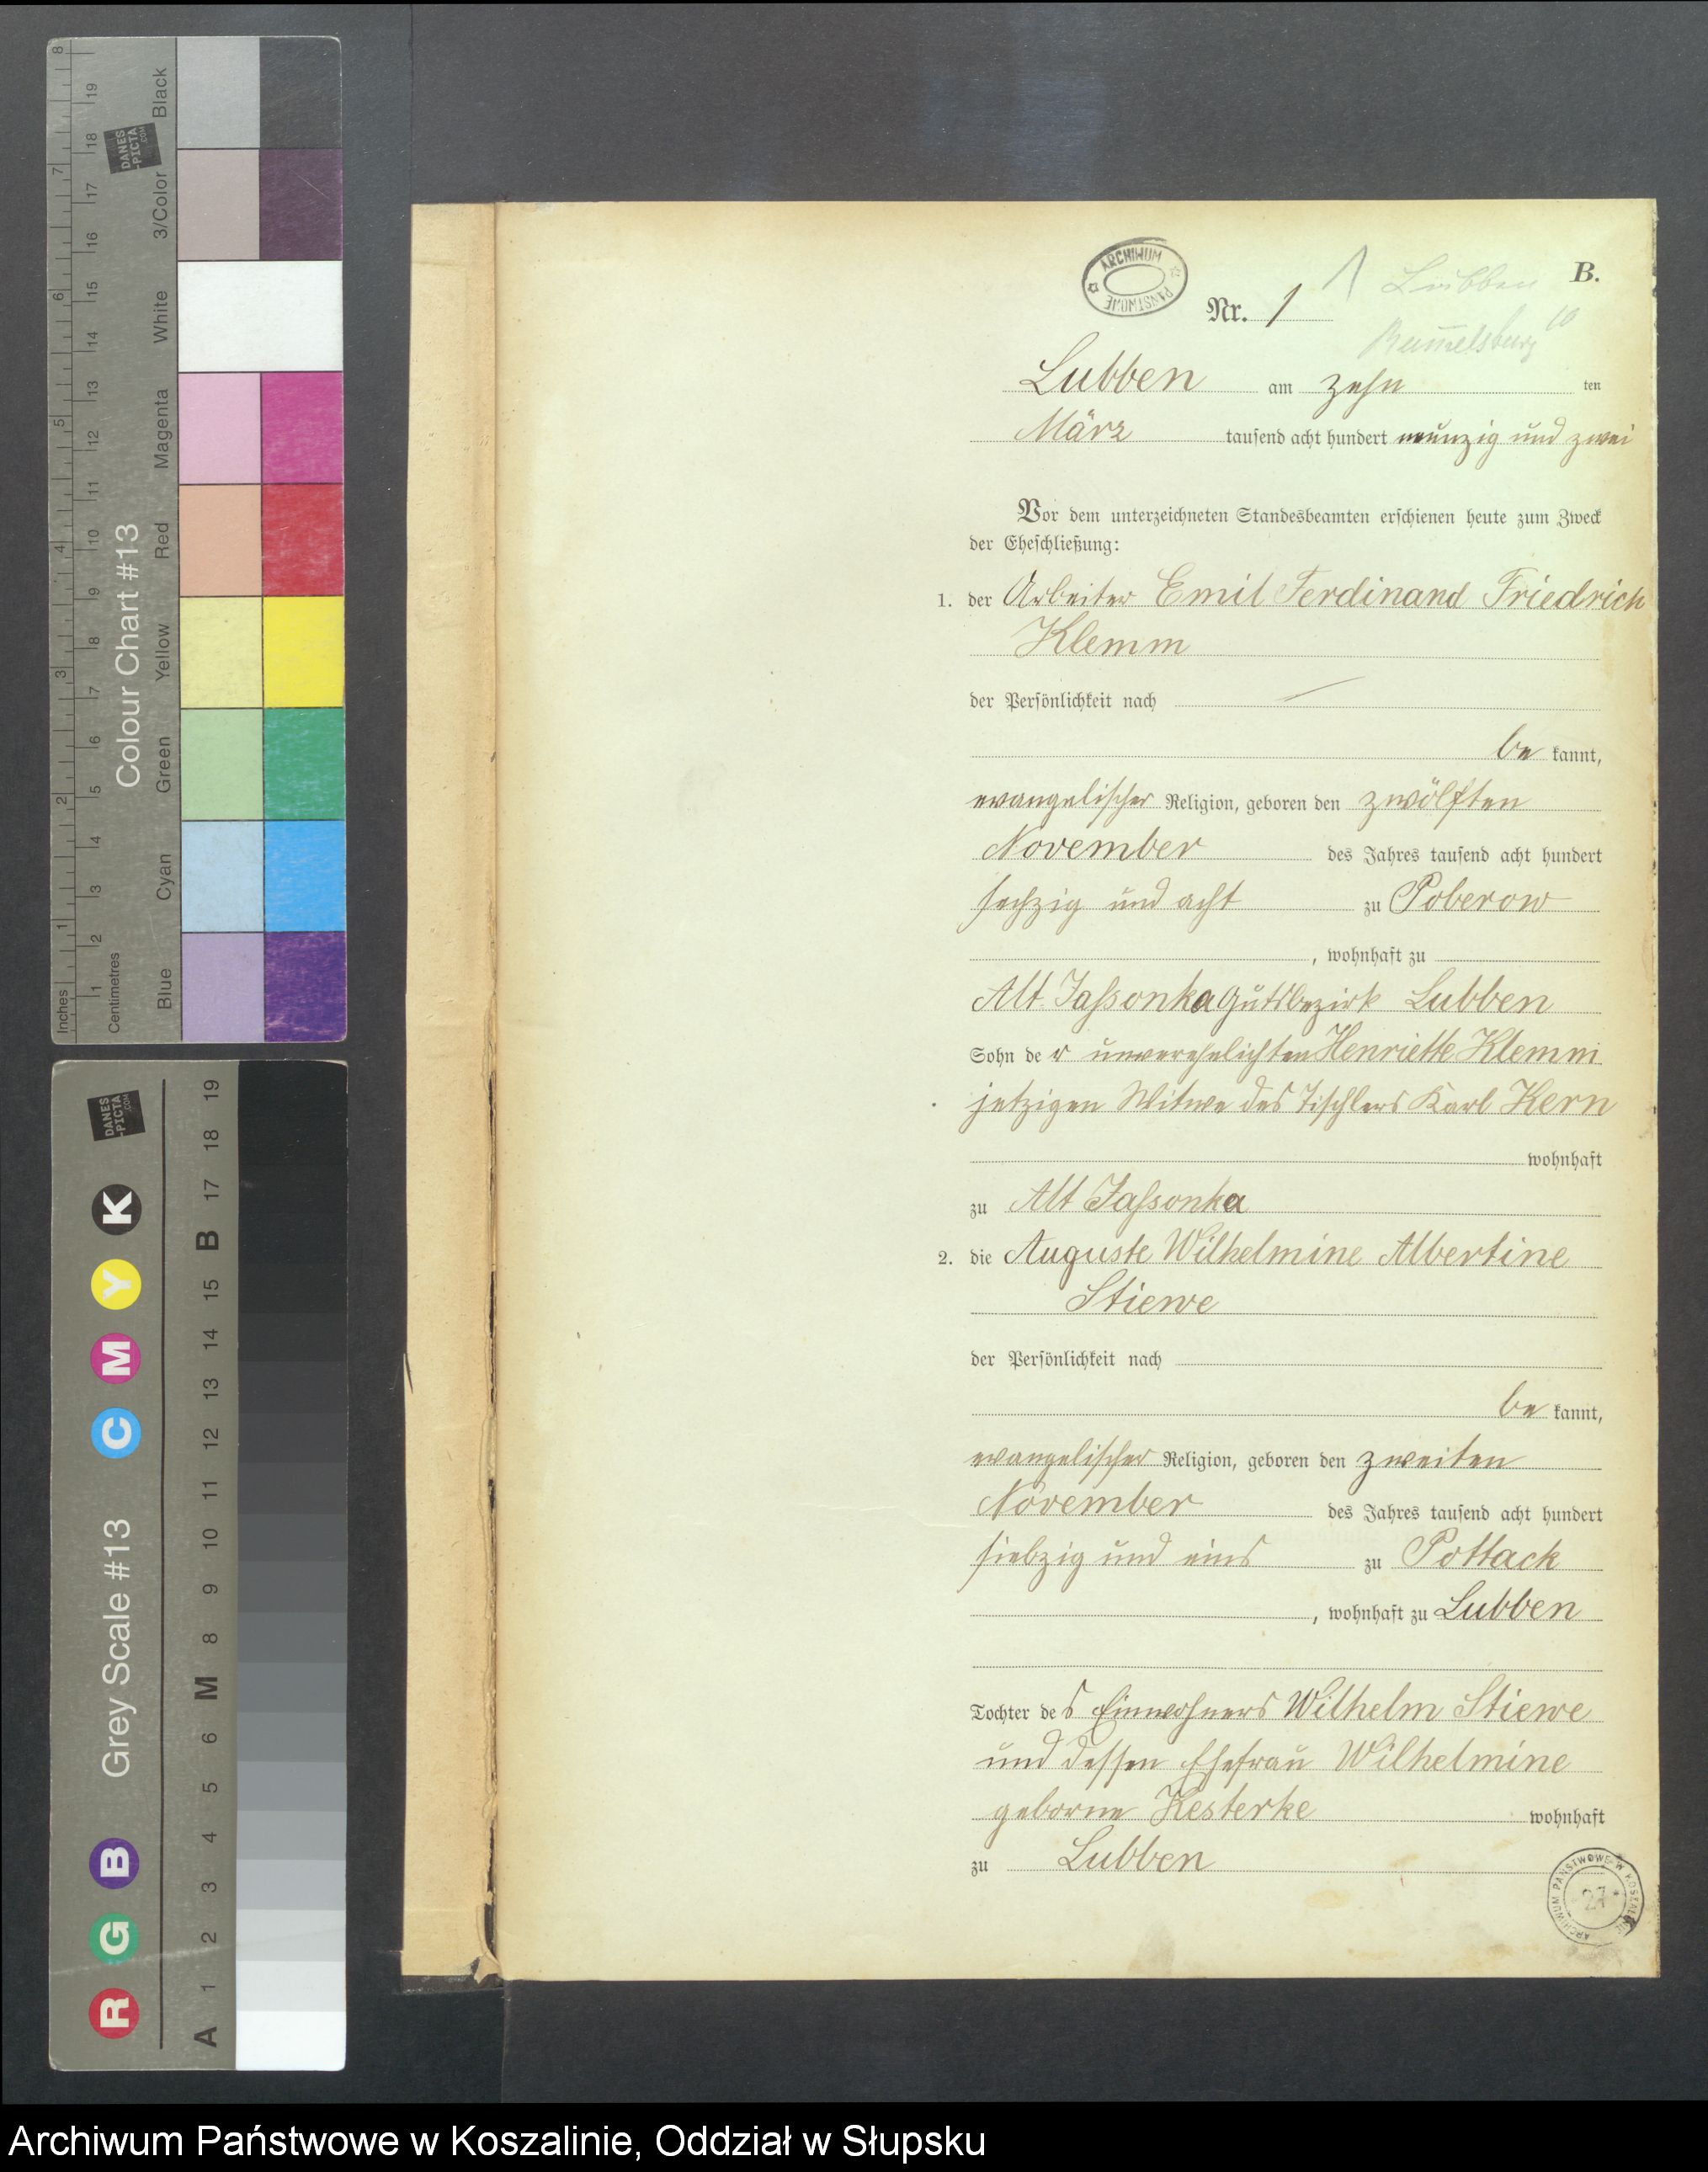 8
7
6
5
4
3
2
1
Inches
19
18
17
16
15
14
13
12
11
10
9
8
7
6
5
4
3
2
1
Centimetres
Colour Chart #13
DANES
-PICTA
.COM
Black
3/Color
White
Magenta
Red
Yellow
Green
Cyan
Blue
DANES
-PICTA
.COM
Grey Scale #13
K
Y
M
C
B
G
R
19
18
17
B
15
14
13
12
11
10
9
8
M
6
5
4
3
2
1
A
ARCHIWUM PAŃSTWOWE
1 Lubben
B.
Nr. 1
Rummelsburg 10
Lubben am zehn ten
März tausend acht hundert neunzig und zwei
Vor dem unterzeichneten Standesbeamten erschienen heute zum Zweck
der Eheschließung:
1. der Arbeiter Emil Ferdinand Friedrich
Klemm
der Persönlichkeit nach
be kannt,
evangelischer Religion, geboren den zwölften
November des Jahres tausend acht hundert
sechzig und acht zu Poberow
, wohnhaft zu
Alt Jassonka Gutsbezirk Lubben
Sohn der unverehelichten Henriette Klemm
jetzigen Witwe des Tischlers Karl Kern
wohnhaft
zu Alt Jassonka
2. die Auguste Wilhelmine Albertine
Stiewe
der Persönlichkeit nach
be kannt,
evangelischer Religion, geboren den zweiten
November des Jahres tausend acht hundert
siebzig und eins zu Pottack
, wohnhaft zu Lubben
Tochter des Einwohners Wilhelm Stiewe
und dessen Ehefrau Wilhelmine
geborne Kesterke wohnhaft
zu Lubben
ARCHIWUM PAŃSTWOWE W KOSZALINIE
27
Archiwum Państwowe w Koszalinie, Oddział w Słupsku